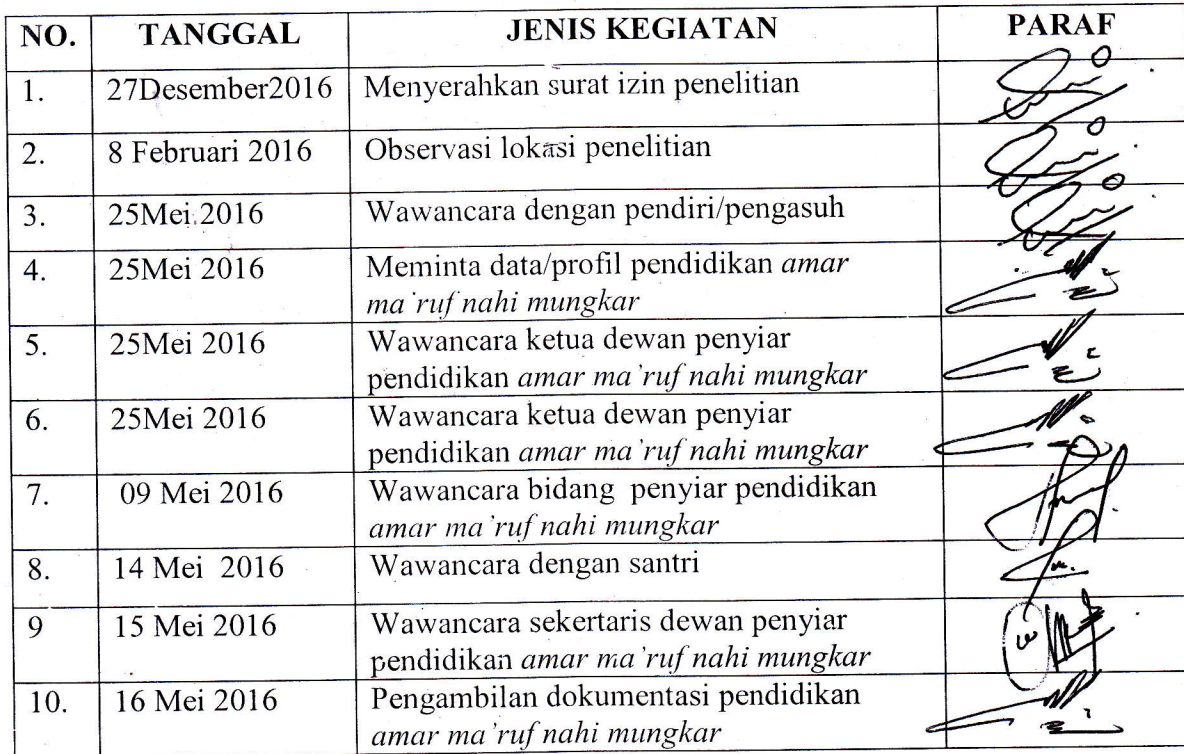 NO. TANGGAL JENIS KEGIATAN PARAF
1. 27Desember2016 Menyerahkan surat izin penelitian
2. 8 Februari 2016 Observasi lokasi penelitian
3. 25Mei 2016 Wawancara dengan pendiri/pengasuh
4. 25Mei 2016 Meminta data/profil pendidikan amar
ma'ruf nahi mungkar
5. 25Mei 2016 Wawancara ketua dewan penyiar
pendidikan amar ma'ruf nahi mungkar
6. 25Mei 2016 Wawancara ketua dewan penyiar
pendidikan amar ma'ruf nahi mungkar
7. 09 Mei 2016 Wawancara bidang penyiar pendidikan
amar ma'ruf nahi mungkar
8. 14 Mei 2016 Wawancara dengan santri
9 15 Mei 2016 Wawancara sekertaris dewan penyiar
pendidikan amar ma'ruf nahi mungkar
10. 16 Mei 2016 Pengambilan dokumentasi pendidikan
amar ma'ruf nahi mungkar